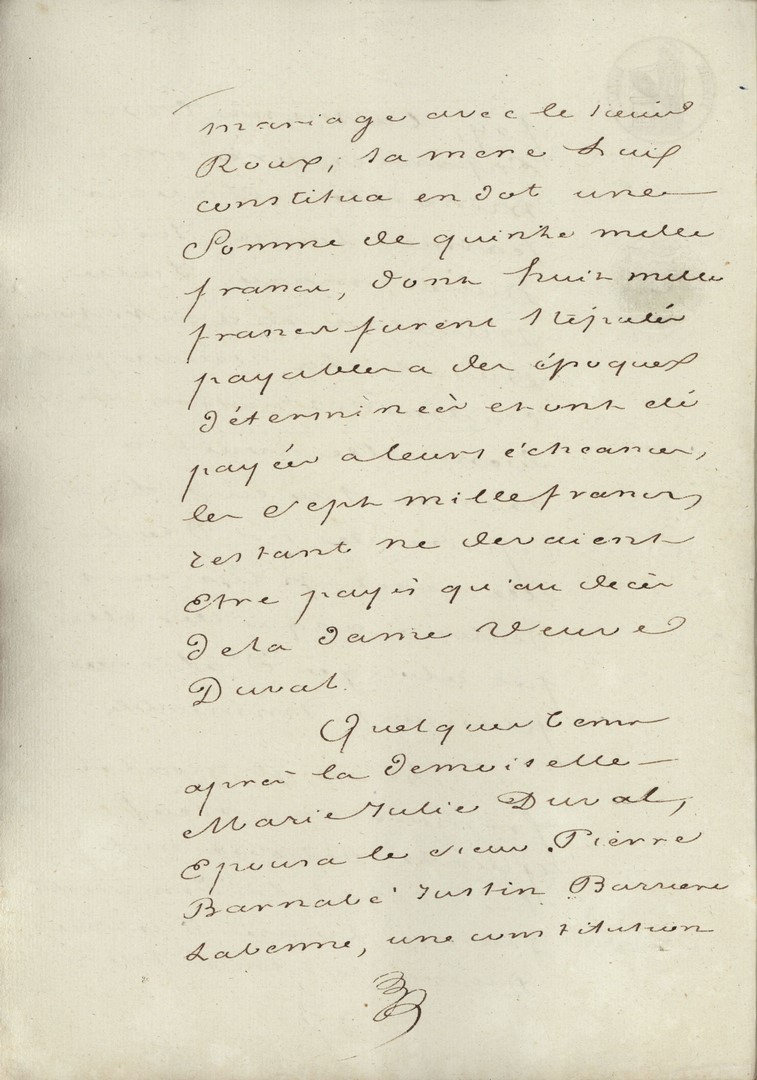 mariage avec le sieur
Roux, sa mere lui
constitua en dot une
Somme de quinze mille
francs, dont huit mille
francs furent stipulés
payables a des époques
déterminées et ont été
payées a leurs échéances,
les sept mille francs
restant ne devaient
Etre payés qu'au décès
de la dame Veuve
Duval.
Quelques tems
après la demoiselle
Marie Julie Duval,
Epousa le sieur Pierre
Barnabé Justin Barriere
Labenne, une constitution